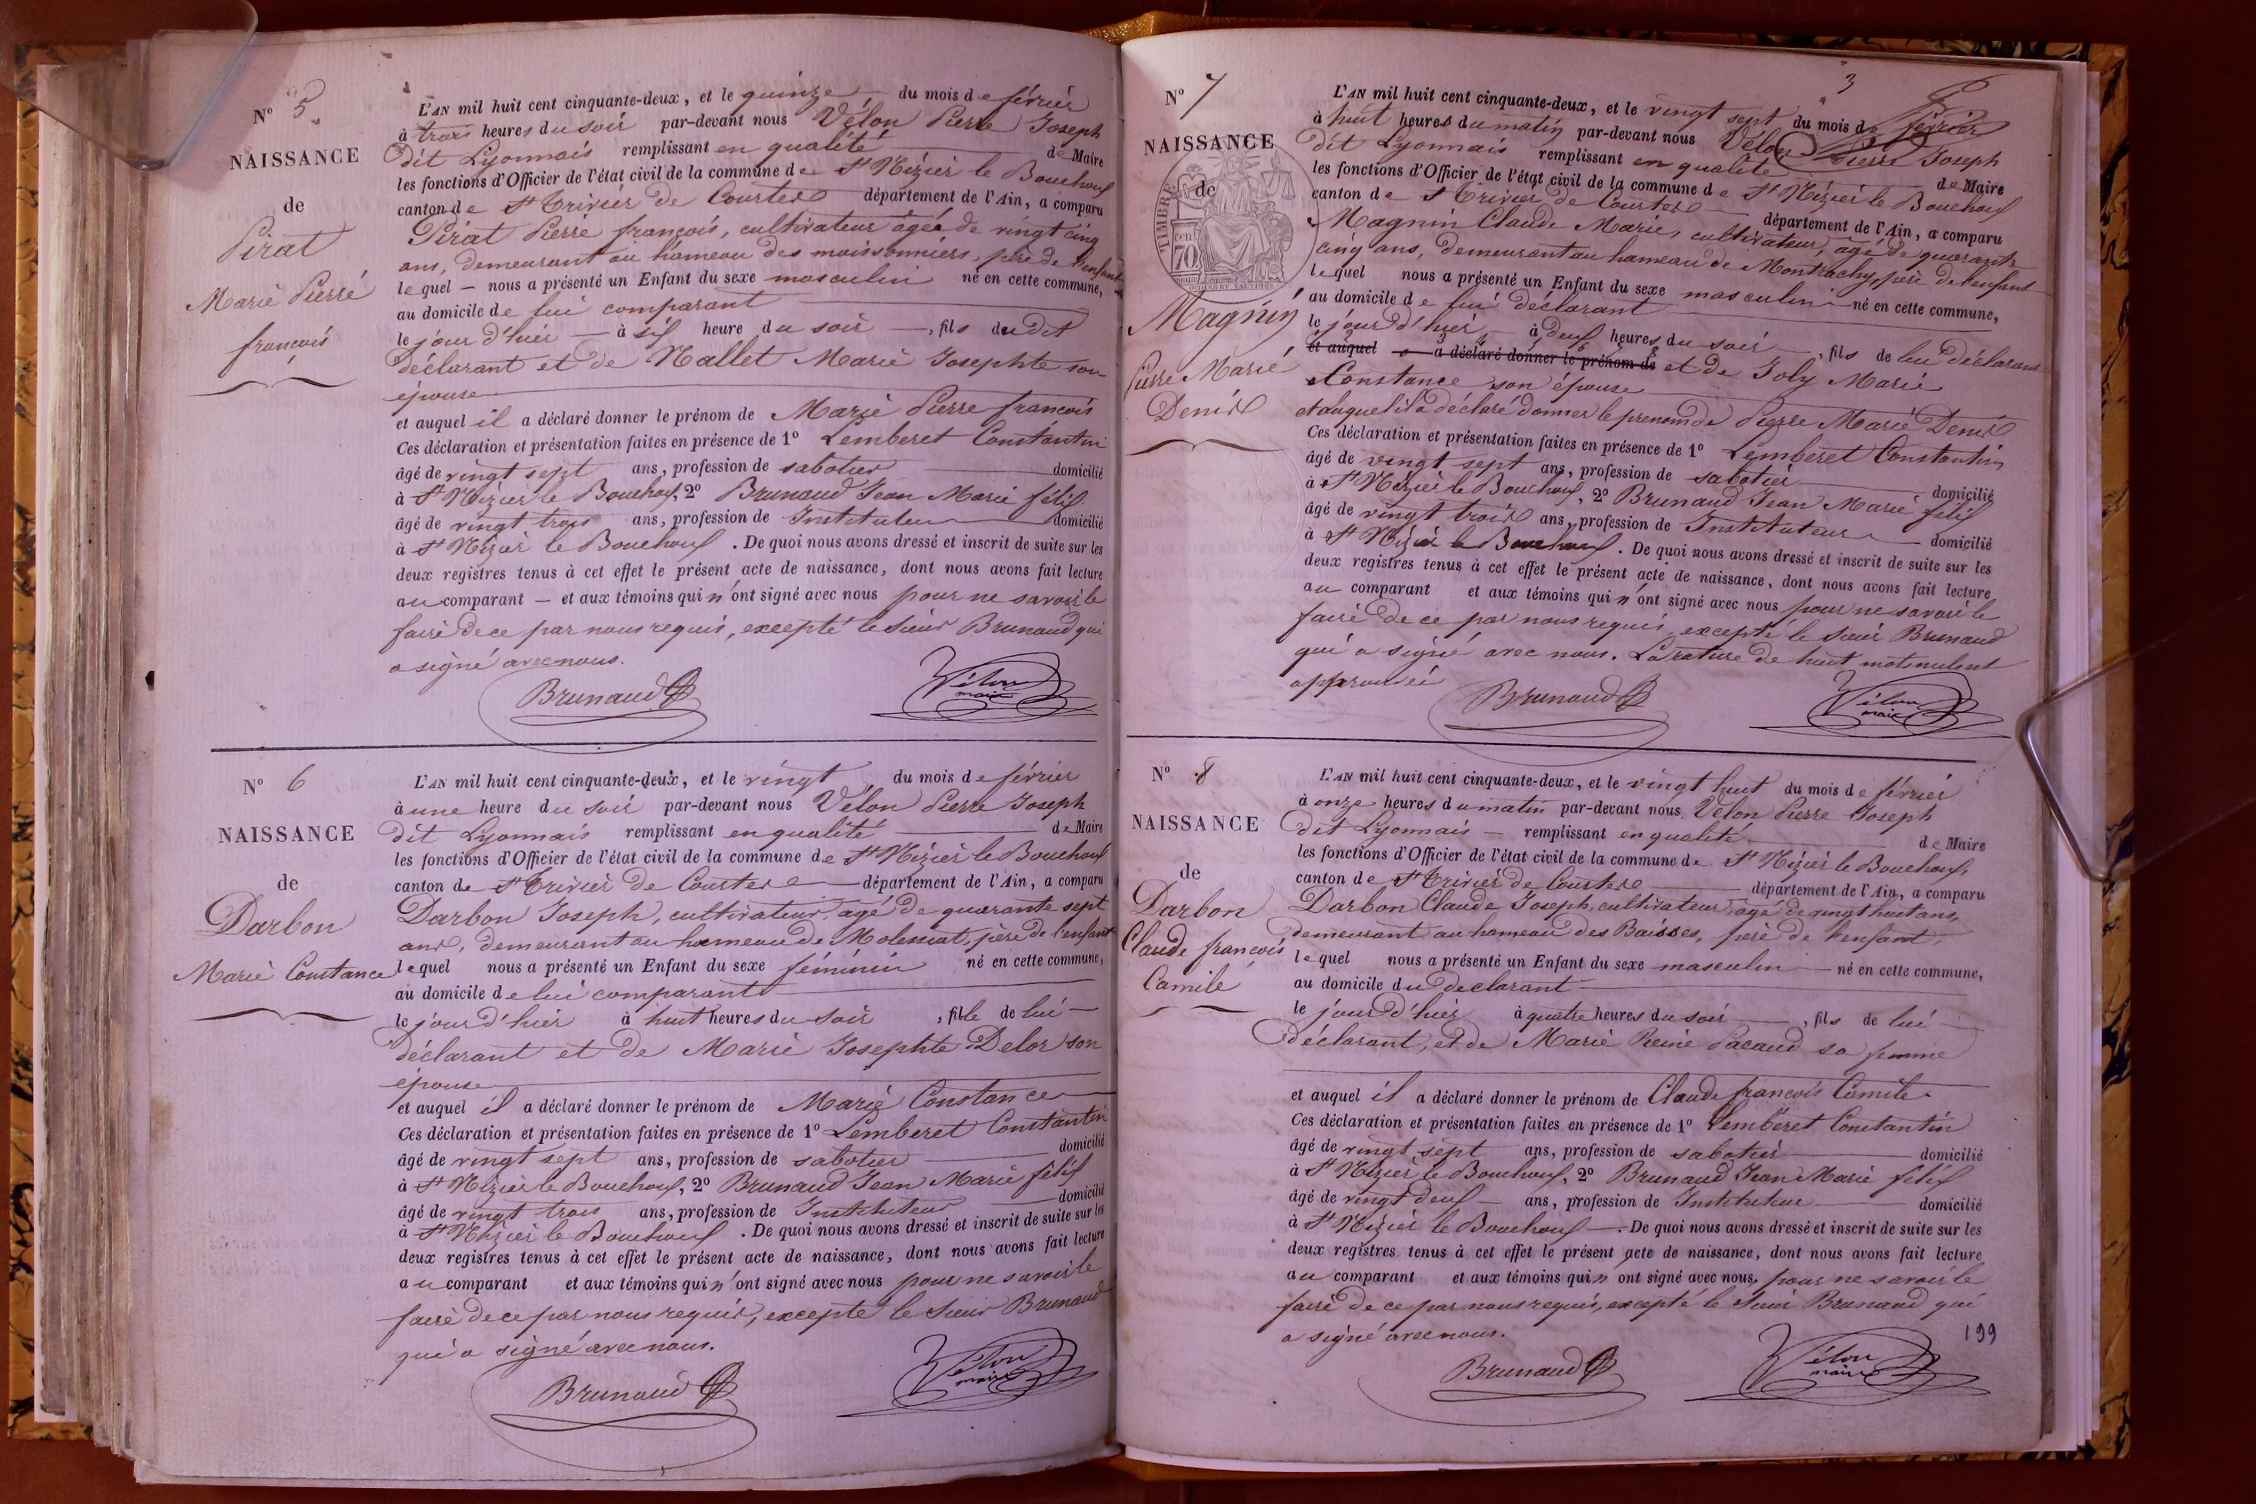 N° 5
NAISSANCE
de
Pirat
Marie Pierre
françois
L'AN mil huit cent cinquante-deux, et le quinze du mois de février
à trois heures du soir par-devant nous Vélon Pierre Joseph
dit Lyonnais remplissant en qualité de Maire
les fonctions d'Officier de l'état civil de la commune de St Nizier le Bouchoux
canton de St Trivier de Courtes département de l'Ain, a comparu
Pirat Pierre françois, cultivateur âgé de vingt cinq
ans, demeurant au hameau des moissonniers, père de l'enfant
lequel — nous a présenté un Enfant du sexe masculin né en cette commune,
au domicile de lui comparant
le jour d'hier — à six heure du soir —, fils du dit
déclarant et de Nallet Marie Josephte son
épouse
et auquel il a déclaré donner le prénom de Marie Pierre françois
Ces déclaration et présentation faites en présence de 1° Lemberet Constantin
âgé de vingt sept ans, profession de sabotier domicilié
à St Nizier le Bouchoux, 2° Brunaud Jean Marie félix
âgé de vingt trois ans, profession de Instituteur domicilié
à St Nizier le Bouchoux. De quoi nous avons dressé et inscrit de suite sur les
deux registres tenus à cet effet le présent acte de naissance, dont nous avons fait lecture
au comparant — et aux témoins qui n'ont signé avec nous pour ne savoir le
faire de ce par nous requis, excepté le sieur Brunaud qui
a signé avec nous.
Brunaud
Vélon
maire
N° 6
NAISSANCE
de
Darbon
Marie Constance
L'AN mil huit cent cinquante-deux, et le vingt du mois de février
à une heure du soir par-devant nous Vélon Pierre Joseph
dit Lyonnais remplissant en qualité de Maire
les fonctions d'Officier de l'état civil de la commune de St Nizier le Bouchoux
canton de St Trivier de Courtes département de l'Ain, a comparu
Darbon Joseph, cultivateur, âgé de quarante sept
ans, demeurant au hameau de Molessiat, père de l'enfant
lequel nous a présenté un Enfant du sexe féminin né en cette commune,
au domicile de lui comparant
le jour d'hier à huit heures du soir, fille de lui —
déclarant et de Marie Josephte Delor son
épouse
et auquel il a déclaré donner le prénom de Marie Constance
Ces déclaration et présentation faites en présence de 1° Lemberet Constantin
âgé de vingt sept ans, profession de sabotier domicilié
à St Nizier le Bouchoux, 2° Brunaud Jean Marie félix
âgé de vingt trois ans, profession de Instituteur domicilié
à St Nizier le Bouchoux. De quoi nous avons dressé et inscrit de suite sur les
deux registres tenus à cet effet le présent acte de naissance, dont nous avons fait lecture
au comparant et aux témoins qui n'ont signé avec nous pour ne savoir le
faire de ce par nous requis, excepté le sieur Brunaud
qui a signé avec nous.
Brunaud
Vélon
maire
3
N° 7
NAISSANCE
de
TIMBRE
70
Magnin
Pierre Marie
Denis
L'AN mil huit cent cinquante-deux, et le vingt sept du mois de février
à huit heures du matin par-devant nous Vélon Pierre Joseph
dit Lyonnais remplissant en qualité de Maire
les fonctions d'Officier de l'état civil de la commune de St Nizier le Bouchoux
canton de St Trivier de Courtes département de l'Ain, a comparu
Magnin Claude Marie, cultivateur, âgé de quarante
cinq ans, demeurant au hameau de Montrachy, père de l'enfant
lequel nous a présenté un Enfant du sexe masculin né en cette commune,
au domicile de lui déclarant
le jour d'hier à deux heures du soir, fils de lui déclarant
et auquel a déclaré donner le prénom de et de Joly Marie
Constance son épouse
et auquel il a déclaré donner le prénom de Pierre Marie Denis
Ces déclaration et présentation faites en présence de 1° Lemberet Constantin
âgé de vingt sept ans, profession de sabotier domicilié
à St Nizier le Bouchoux, 2° Brunaud Jean Marie félix
âgé de vingt trois ans, profession de Instituteur domicilié
à St Nizier le Bouchoux. De quoi nous avons dressé et inscrit de suite sur les
deux registres tenus à cet effet le présent acte de naissance, dont nous avons fait lecture
au comparant et aux témoins qui n'ont signé avec nous pour ne savoir le
faire de ce par nous requis, excepté le sieur Brunaud
qui a signé avec nous. La rature de huit mots nulent
approuvée
Brunaud
Vélon
maire
N° 8
NAISSANCE
de
Darbon
Claude françois
Camile
L'AN mil huit cent cinquante-deux, et le vingt huit du mois de février
à onze heures du matin par-devant nous Vélon Pierre Joseph
dit Lyonnais — remplissant en qualité de Maire
les fonctions d'Officier de l'état civil de la commune de St Nizier le Bouchoux,
canton de St Trivier de Courtes département de l'Ain, a comparu
Darbon Claude Joseph, cultivateur, âgé de vingt huit ans,
demeurant au hameau des Baisses, père de l'enfant,
lequel nous a présenté un Enfant du sexe masculin — né en cette commune,
au domicile du déclarant
le jour d'hier à quatre heures du soir —, fils de lui
déclarant, et de Marie Reine Pacaud sa femme
et auquel il a déclaré donner le prénom de Claude françois Camile
Ces déclaration et présentation faites en présence de 1° Lemberet Constantin
âgé de vingt sept ans, profession de sabotier domicilié
à St Nizier le Bouchoux, 2° Brunaud Jean Marie félix
âgé de vingt deux ans, profession de Instituteur domicilié
à St Nizier le Bouchoux. De quoi nous avons dressé et inscrit de suite sur les
deux registres tenus à cet effet le présent acte de naissance, dont nous avons fait lecture
au comparant et aux témoins qui n'ont signé avec nous, pour ne savoir le
faire de ce par nous requis, excepté le sieur Brunaud qui
a signé avec nous.
199
Brunaud
Vélon
maire